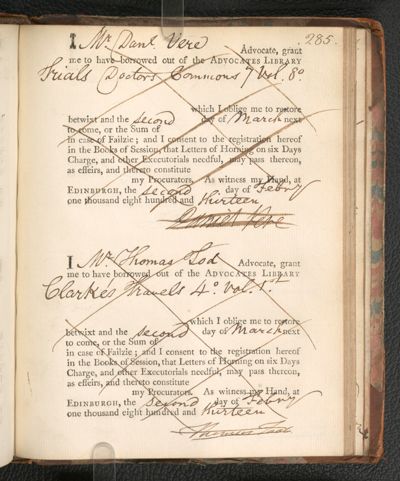 285.
I Mr. Danl. Vere Advocate, grant
me to have borrowed out of the ADVOCATES LIBRARY
Trials Doctors Commons 7 Vol. 8o
which I oblige me to restore
betwixt and the second day of March next
to come, or the Sum of
in case of Failzie; and I consent to the registration hereof
in the Books of Session, that Letters of Horning on six Days
Charge, and other Executorials needful, may pass thereon,
as effeirs, and thereto constitute
my Procurators. As witness my Hand, at
EDINBURGH, the second day of Febry
one thousand eight hundred and thirteen
Daniel Vere
I Mr. Thomas Tod Advocate, grant
me to have borrowed out of the ADVOCATES LIBRARY
Clarke's Travels 4o. Vol. 1st
which I oblige me to restore
betwixt and the second day of March next
to come, or the Sum of
in case of Failzie; and I consent to the registration hereof
in the Books of Session, that Letters of Horning on six Days
Charge, and other Executorials needful, may pass thereon,
as effeirs, and thereto constitute
my Procurators. As witness my Hand, at
EDINBURGH, the second day of Febry
one thousand eight hundred and thirteen
Thomas Tod